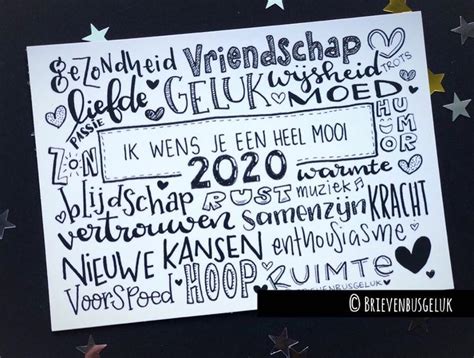 gezondheid Vriendschap
TROTS
liefde GELUK wijsheid
PASSIE MOED
HUMOR
IK WENS JE EEN HEEL MOOI
2020
ZON warmte
blijdschap RUST muziek
vertrouwen samenzijn KRACHT
NIEUWE KANSEN enthousiasme
Voorspoed HOOP RUIMTE
BRIEVENBUSGELUK
© BRIEVENBUSGELUK